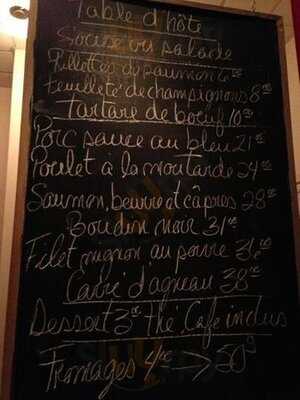 Table d'hôte
Soupe ou salade
Rillettes de saumon 6.00
Feuilleté de champignons 8.00
Tartare de boeuf 10.00
Porc sauce au bleu 21.00
Poulet à la moutarde 24.00
Saumon, beurre et câpres 28.00
Boudin noir 31.00
Filet mignon au poivre 36.00
Carré d'agneau 38.00
Dessert 3.00 thé Café inclus
Fromages 4.00 → 50g